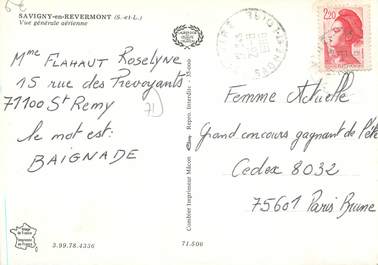 SAVIGNY-en-REVERMONT (S.-et-L.)
Vue générale aérienne
Mme FLAHAUT Roselyne
15 rue des Prevoyants
71100 St Remy
le mot est:
BAIGNADE
71
3.99.78.4336
Combier Imprimeur Mâcon
Repro. Interdite
71.506
2,20
Femme Actuelle
Grand concours gagnant de l'été
Cedex 8032
75601 Paris Brune